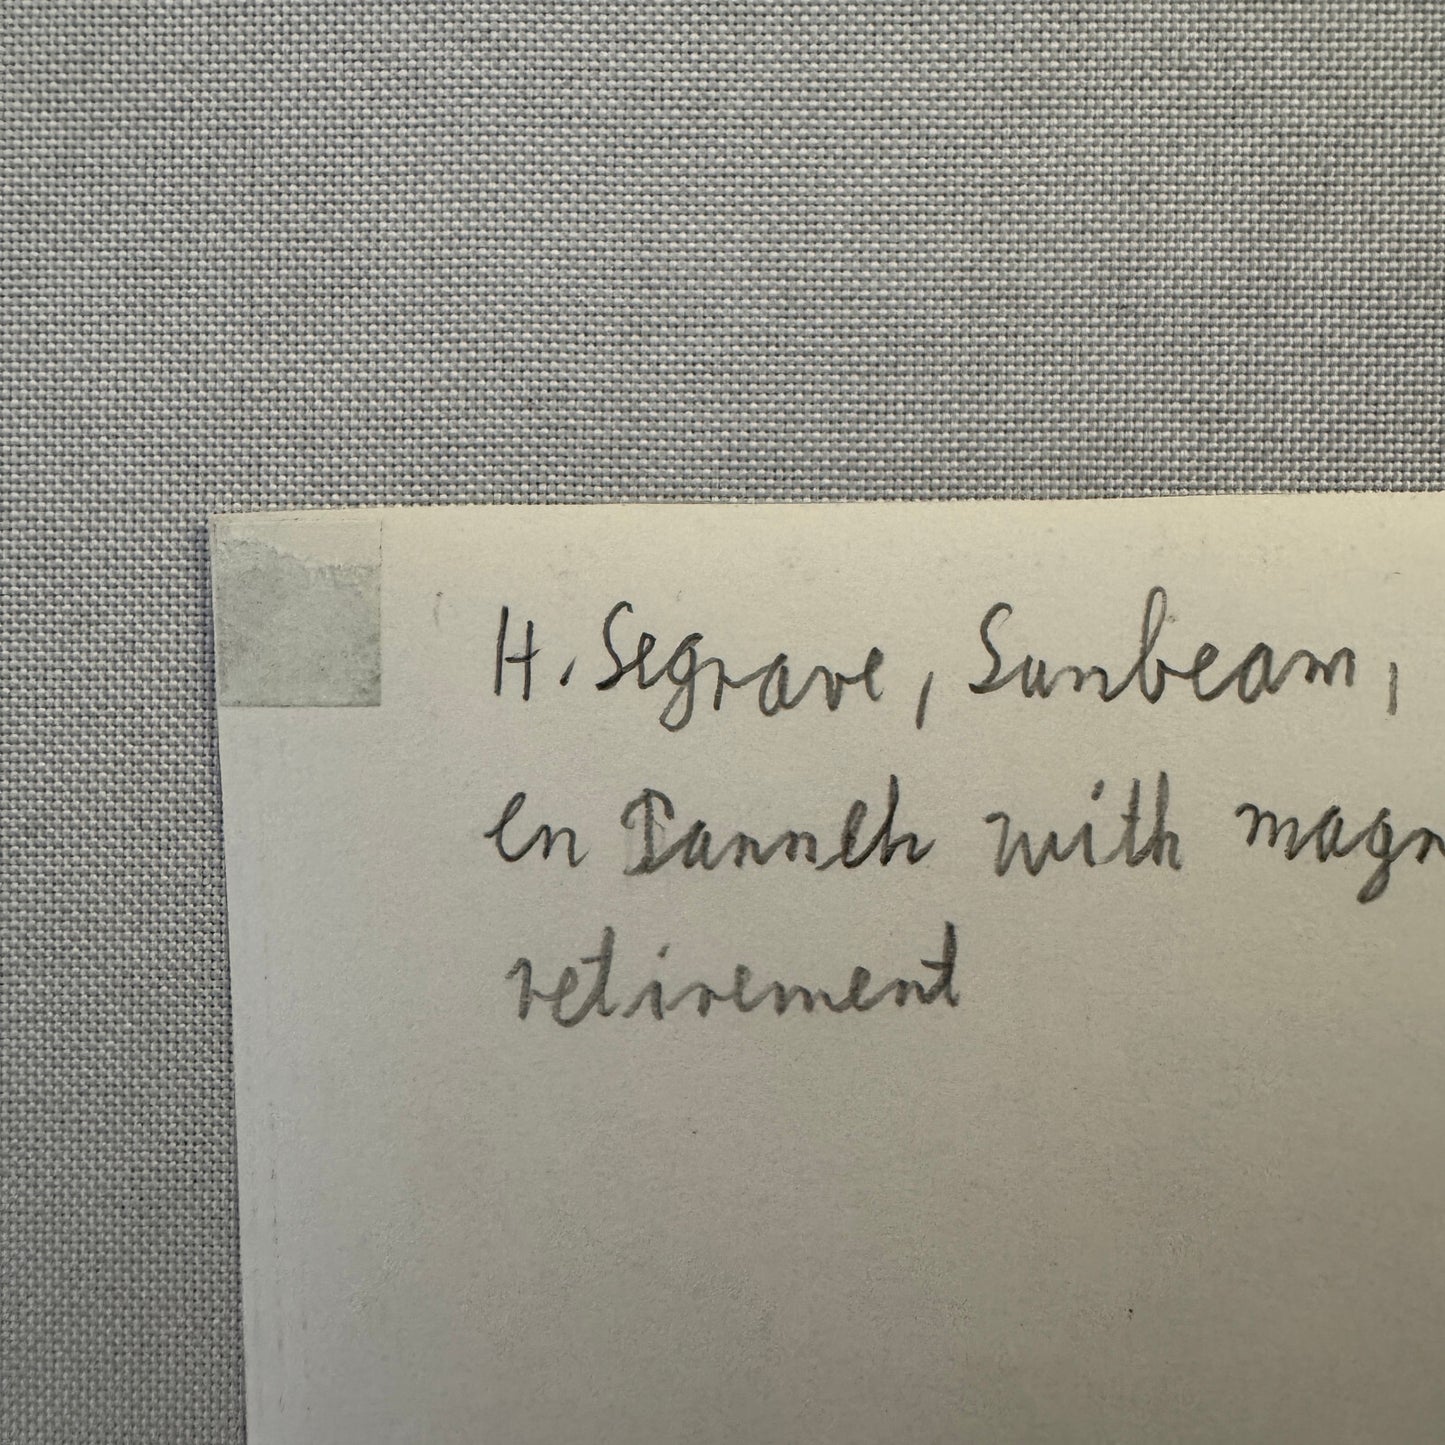 H. Segrave, Sunbeam,
en Panneh with magn
retirement